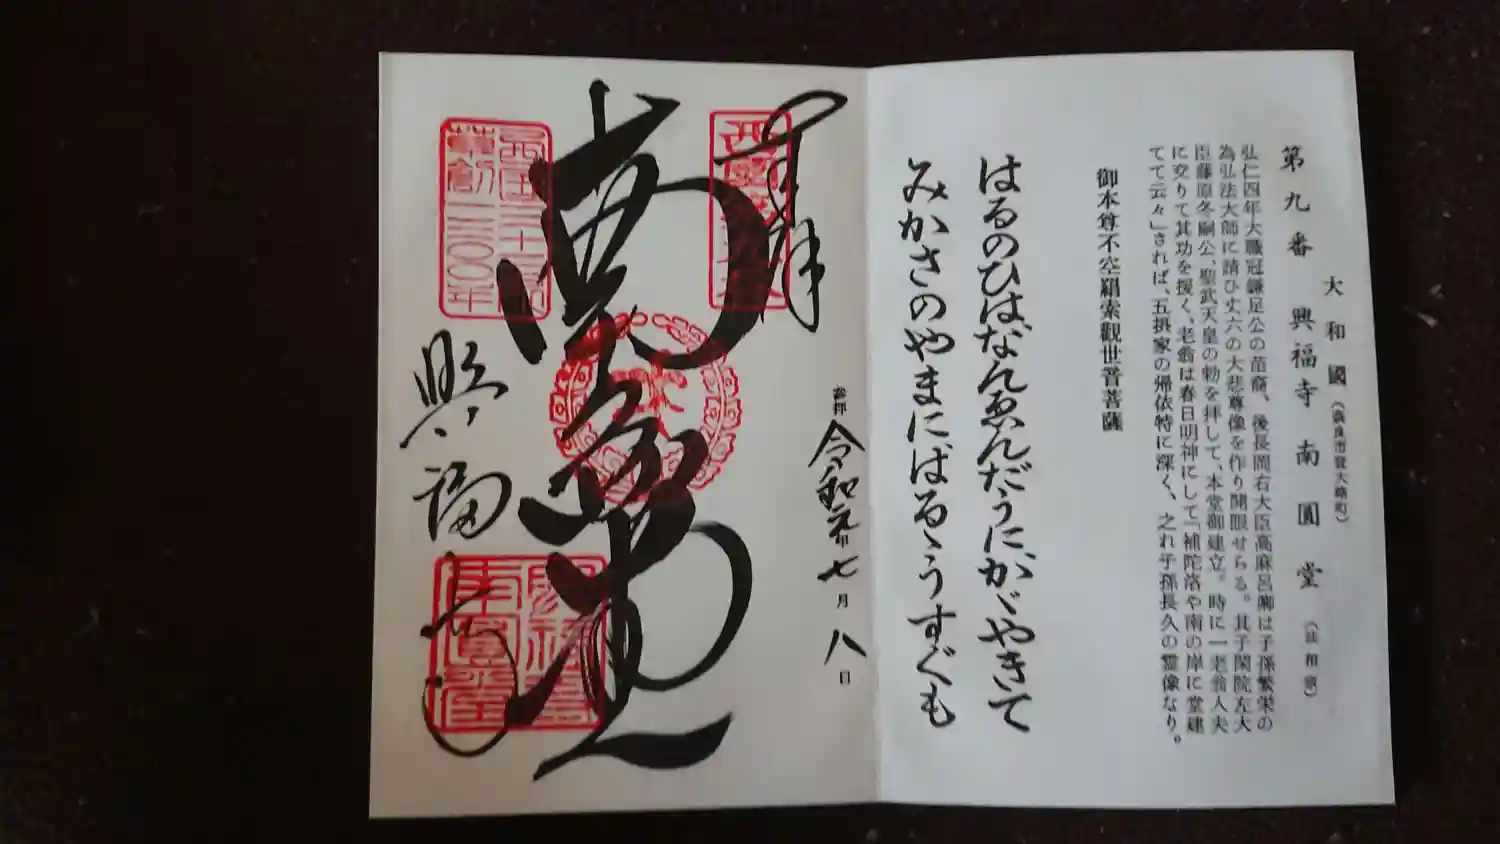 大和國(奈良市登大路町)
第九番 興福寺南圓堂(法相宗)
弘仁四年大職冠鎌足公の苗裔、後長岡右大臣高麻呂卿は子孫繁栄の
為弘法大師に請ひ丈六の大悲尊像を作り開眼せらる。其子閑院左大
臣藤原冬嗣公、聖武天皇の勅を拝して、本堂御建立。時に一老翁人夫
に交りて其功を援く、老翁は春日明神にして「補陀洛や南の岸に堂建
てて云々」されば、五摂家の帰依特に深く、之れ子孫長久の霊像なり。
御本尊不空羂索觀世音菩薩
はるのひはなんゑんだうにかゞやきて
みかさのやまにはるゝうすぐも
奉拝
参拝 令和元年七月八日
南圓堂
興福寺
西国三十三所
草創一三〇〇年
興福寺
南圓堂